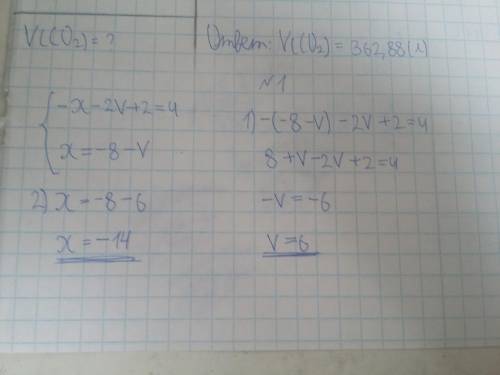 V(CO₂) = ?
Ответ: V(CO₂) = 362,88(л)
№1
{-x-2v+2=4
x=-8-v
1) -(-8-v)-2v+2=4
8+v-2v+2=4
-v=-6
v=6
2) x=-8-6
x=-14